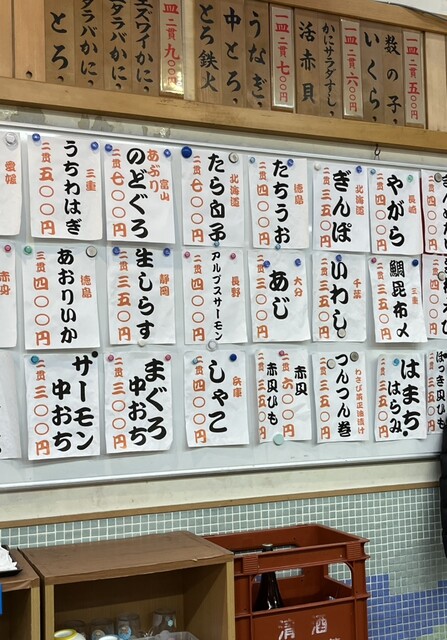 一皿二貫五〇〇円
数の子、
いくら、
一皿二貫六〇〇円
かにサラダすし
活赤貝
一皿二貫七〇〇円
うなぎ、
中とろ、
とろ鉄火
一皿二貫九〇〇円
生ズワイかに、
タラバかに、
とろ、
長崎
やがら
二貫 四〇〇円
北海道
ぎんぽ
二貫 三五〇円
徳島
たちうお
二貫 四〇〇円
北海道
たら白子
二貫 四〇〇円
富山
あぶり
のどぐろ
二貫 七〇〇円
三重
うちわはぎ
二貫 三五〇円
愛媛
三重
鯛昆布〆
二貫 三五〇円
千葉
いわし
二貫 三五〇円
大分
あじ
二貫 三五〇円
長野
アルプスサーモン
二貫 四〇〇円
静岡
生しらす
二貫 三五〇円
徳島
あおりいか
二貫 四〇〇円
はまち・
はらみ
二貫 三〇〇円
わさび菜正油漬け
つんつん巻
三五〇円
赤貝 六〇〇円
赤貝ひも
二貫 三五〇円
兵庫
しゃこ
二貫 四〇〇円
まぐろ
中おち
二貫 三〇〇円
サーモン
中おち
二貫 三〇〇円
清酒